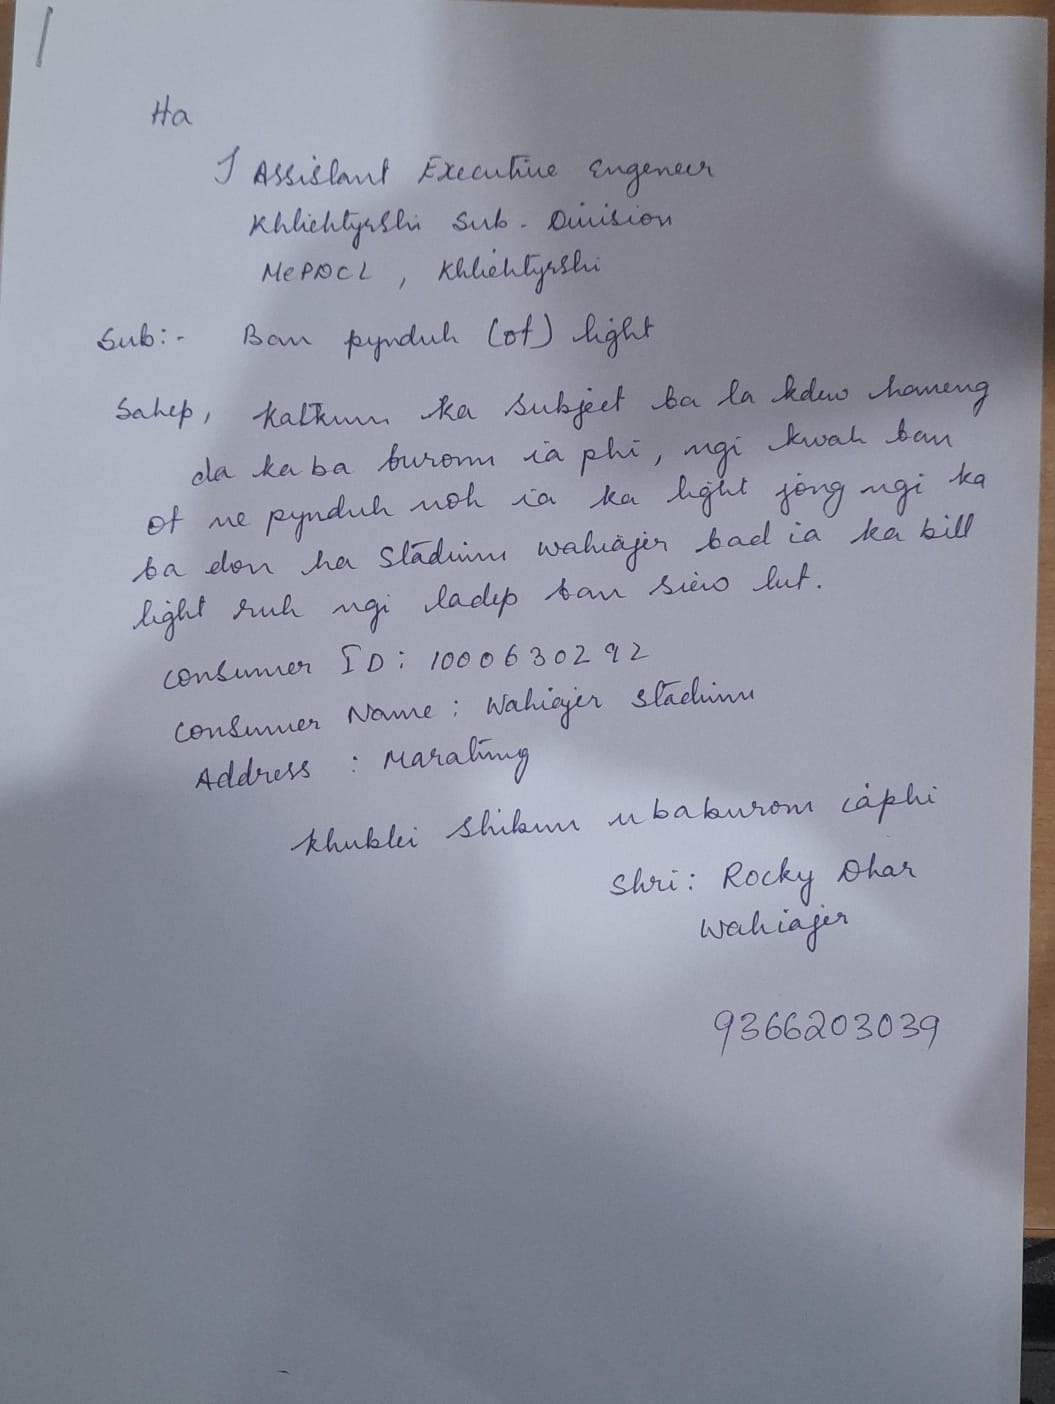 Ha
I Assistant Executive Engeneer
Khliehtyrshi Sub-Division
MePDCL, Khliehtyrshi
Sub:- Ban pynduh (ot) light
Sahep, katkum ka subject ba la kdew haneng
da kaba burom ia phi, ngi kwah ban
ot ne pynduh noh ia ka light jong ngi ka
ba don ha Stadium wahiajer bad ia ka bill
light ruh ngi ladep ban siew lut.
Consumer ID: 1000630292
Consumer Name: Wahiajer Stadium
Address : Maralimg
Khublei shibun u baburom iaphi
Shri: Rocky Dhar
Wahiajer
9366203039